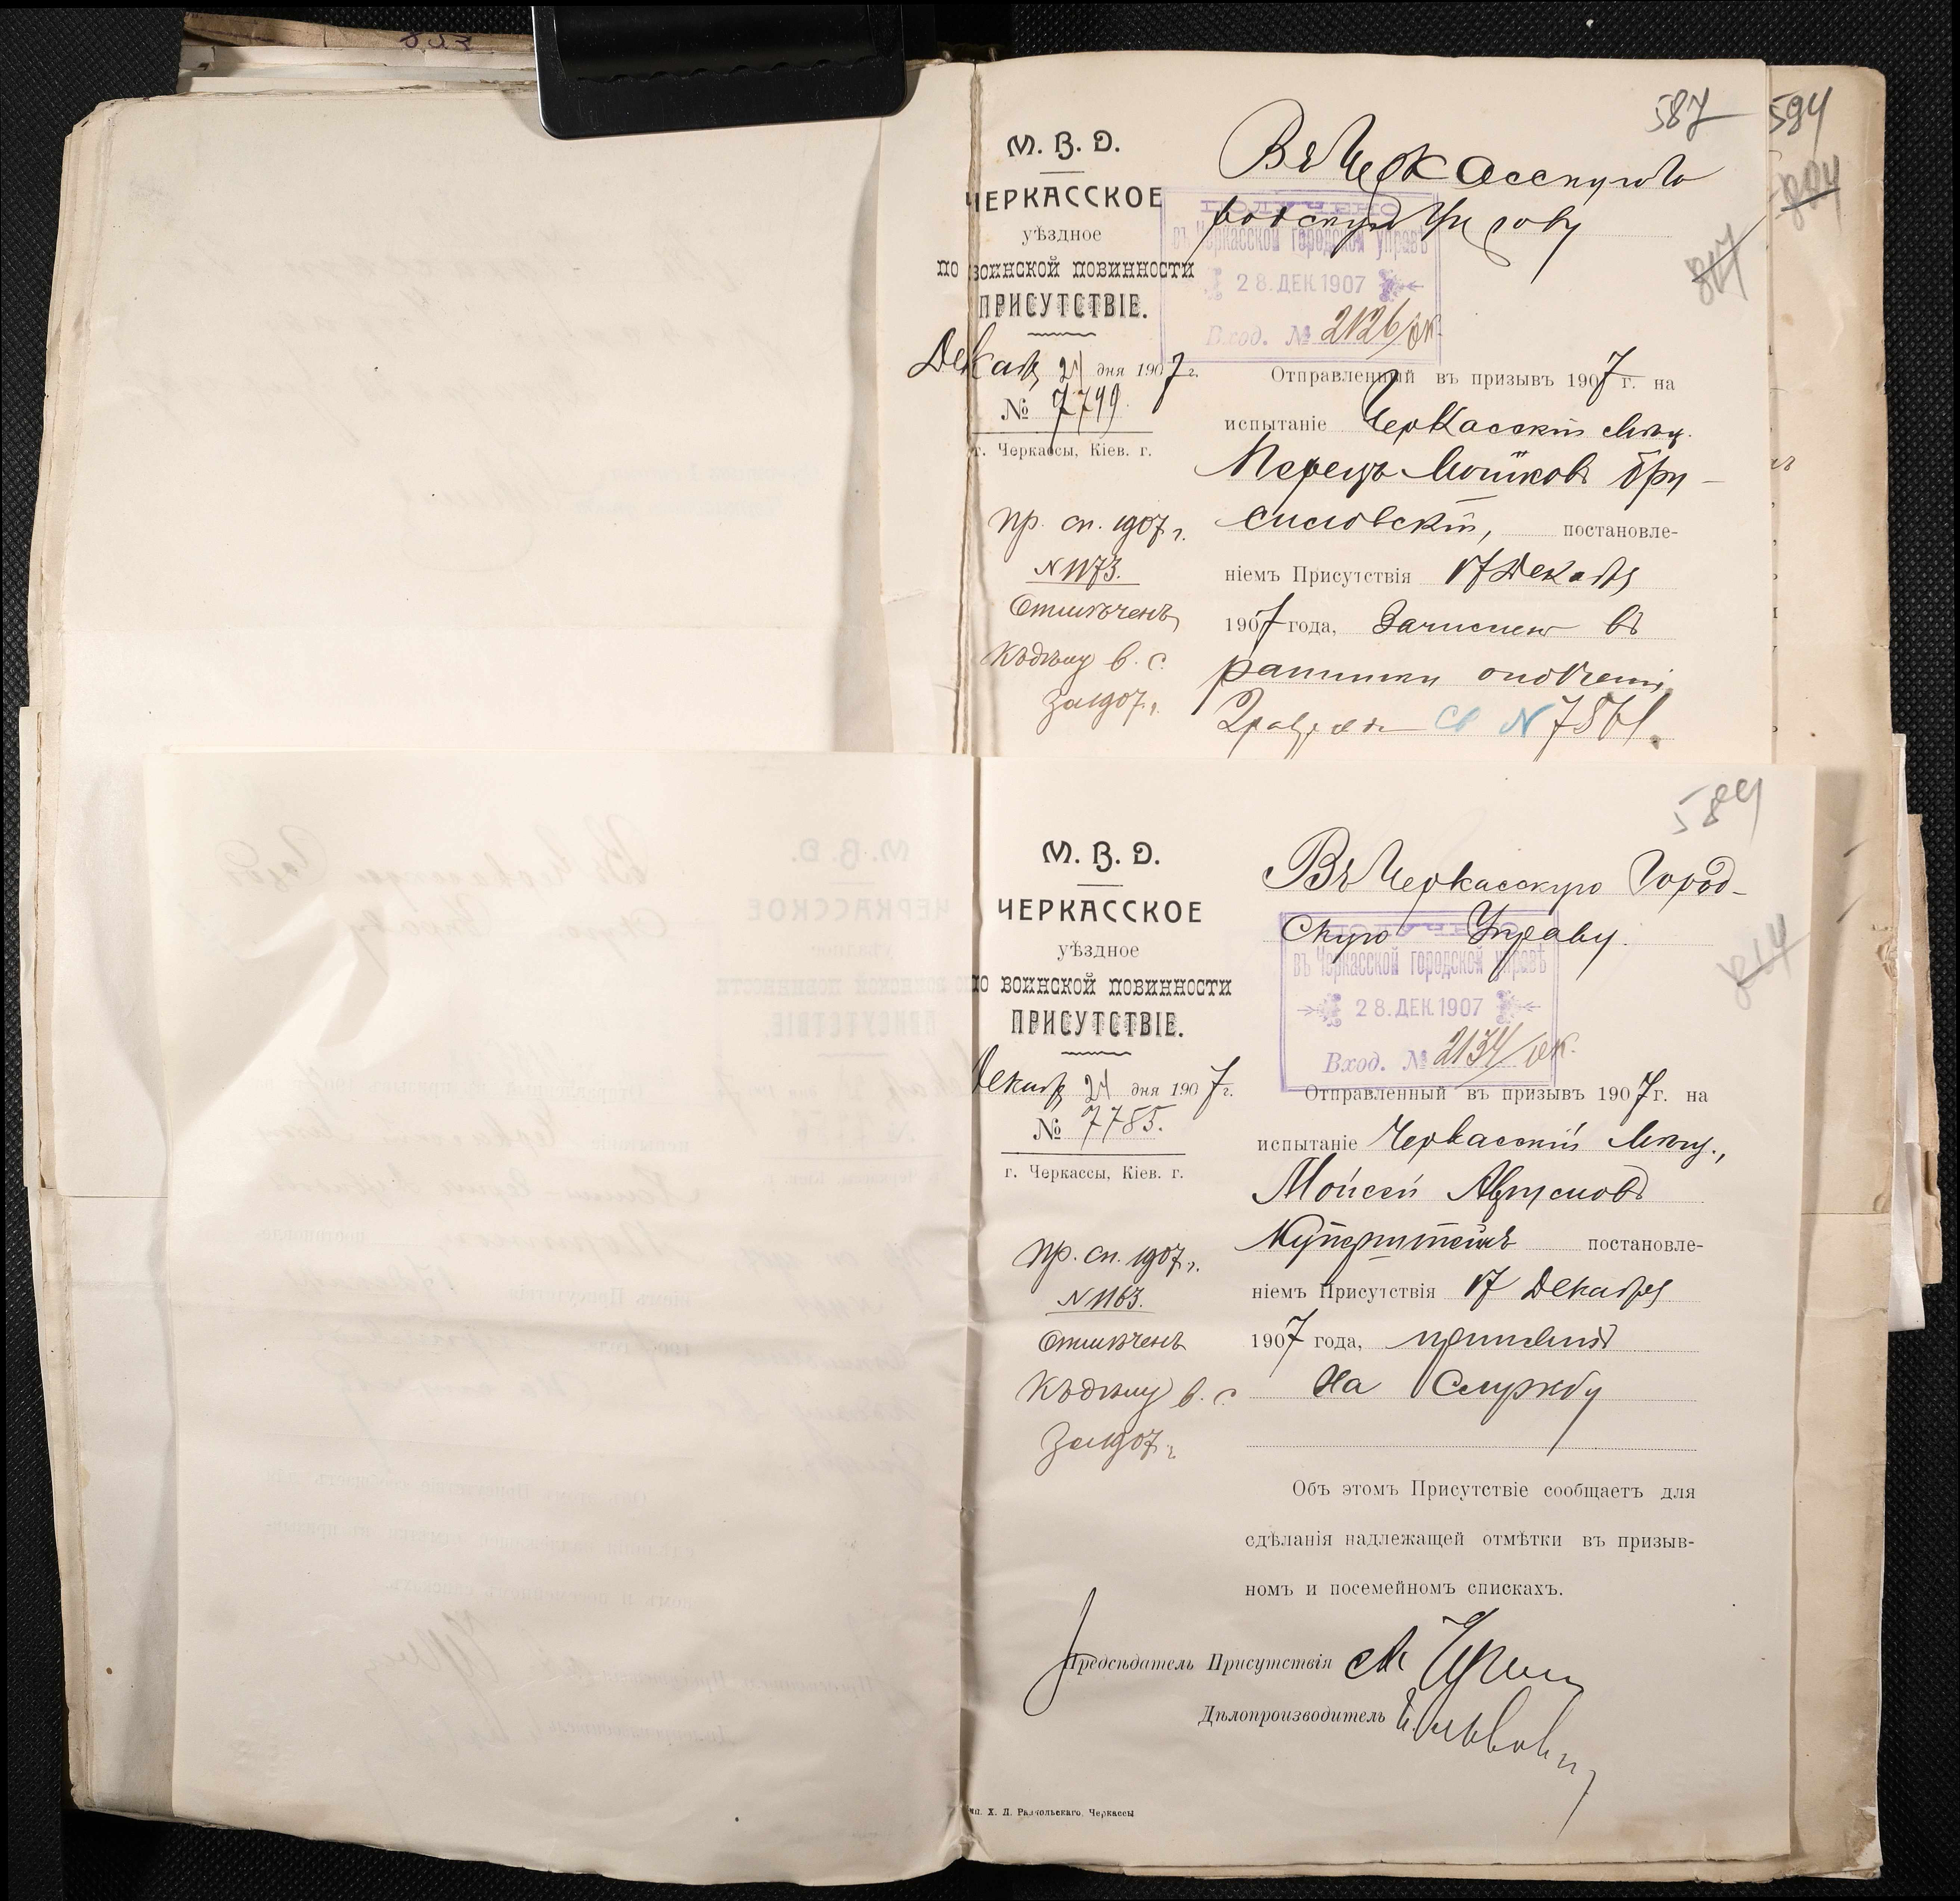 587
594
М. В. Д.
ЧЕРКАССКОЕ
уѣздное
по воинской повинности
ПРИСУТСТВІЕ.
Декаб 21 дня 1907 г.
№ 7799.
г. Черкассы, Кіев. г.
Въ Черкасскую Го
родскую Управу
ПОЛУЧЕНО
въ Черкасской городской управѣ
28. ДЕК. 1907
Вход. № 2126/ок
Отправленный въ призывъ 1907 г. на
испытаніе Черкасскій мѣщ.
Перецъ Мошковъ Бру-
силовскій, постановле-
ніемъ Присутствія 17 Декабря
1907 года, Зачисленъ въ
ратники ополченія
2 разряда Св № 7561.
Пр. сп. 1907 г.
№ 1173.
Отмѣченъ
Къ дѣлу в. с.
за 1907 г.
589
М. В. Д.
ЧЕРКАССКОЕ
уѣздное
по воинской повинности
ПРИСУТСТВІЕ.
Декабр 21 дня 1907 г.
№ 7785.
г. Черкассы, Кіев. г.
Въ Черкасскую Город-
скую Управу.
ПОЛУЧЕНО
въ Черкасской городской управѣ
28. ДЕК. 1907
Вход. № 2134/ок.
Отправленный въ призывъ 1907 г. на
испытаніе Черкасскій Мѣщ.,
Мойсей
Куперштейнъ постановле-
ніемъ Присутствія 17 Декабря
1907 года, принятъ
на Службу
Пр. сп. 1907 г.
№ 1163.
Отмѣченъ
Къ дѣлу в. с.
за 1907 г.
Объ этомъ Присутствіе сообщаетъ для
сдѣланія надлежащей отмѣтки въ призыв-
номъ и посемейномъ спискахъ.
Предсѣдатель Присутствія
Дѣлопроизводитель
Х. Д. Черкассы